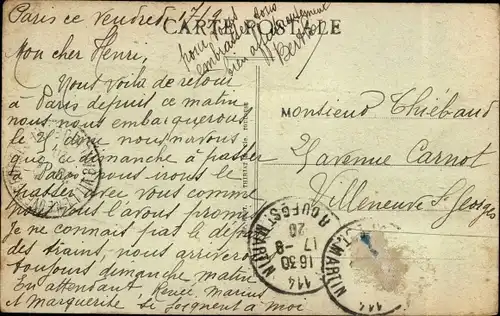 Paris ce Vendredi
CARTE POSTALE
Mon cher Henri,
Nous voilà de retour
à Paris depuis ce matin
nous nous embarquerons
le 25, donc nous n'avons
que ce dimanche à passer
à Paris, nous irons le
passer avec vous comme
nous l'avons promis
Je ne connais pas le départ
des trains, nous arriverons
toujours dimanche matin
En attendant, Renée, Marius
et Marguerite se joignent à moi
pour vous
embrasser tous
bien affectueusement
Berthe
Monsieur Thiébaud
25 avenue Carnot
Villeneuve St Georges
R DU FG ST MARTIN
20
17 - 9
16 30
114
ST MARTIN
114